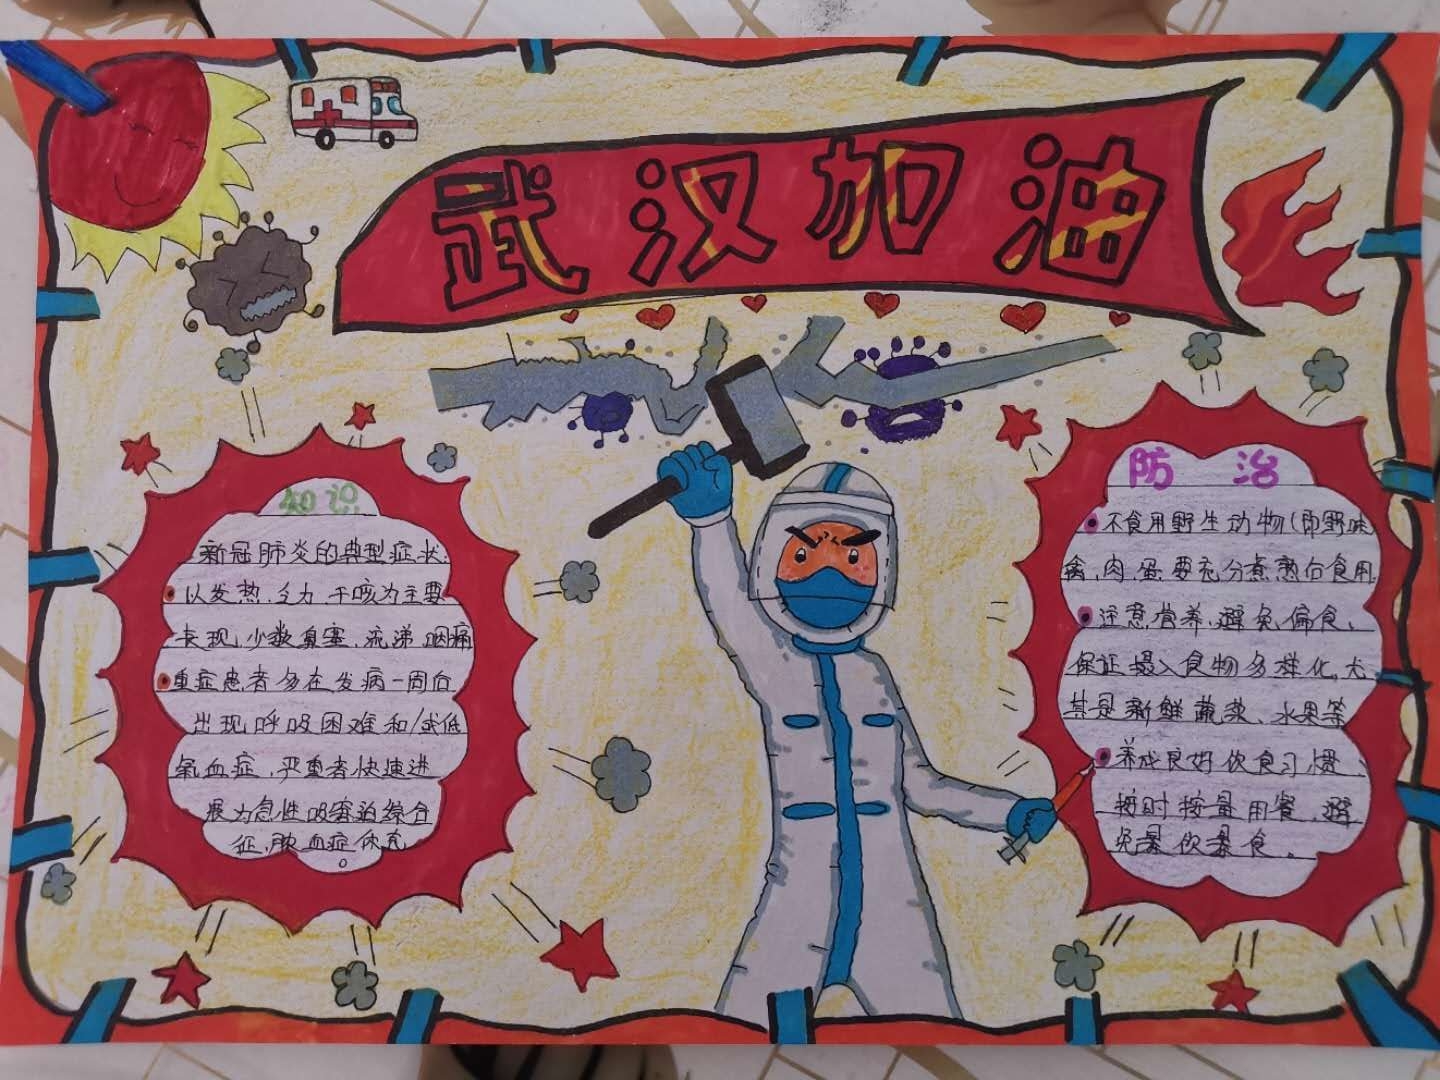 武汉加油
知识
新冠肺炎的典型症状:
以发热、乏力、干咳为主要
表现,少数鼻塞、流涕、咽痛
重症患者多在发病一周后
出现呼吸困难和/或低
氧血症,严重者快速进
展为急性呼窘迫综合
征,脓血症休克
。
防治
不食用野生动物(即野味
禽、肉、蛋要充分煮熟后食用
注意营养,避免偏食、
保证摄入食物多样化,尤
其是新鲜蔬菜、水果等
养成良好饮食习惯、
按时按量用餐,避
免暴饮暴食。